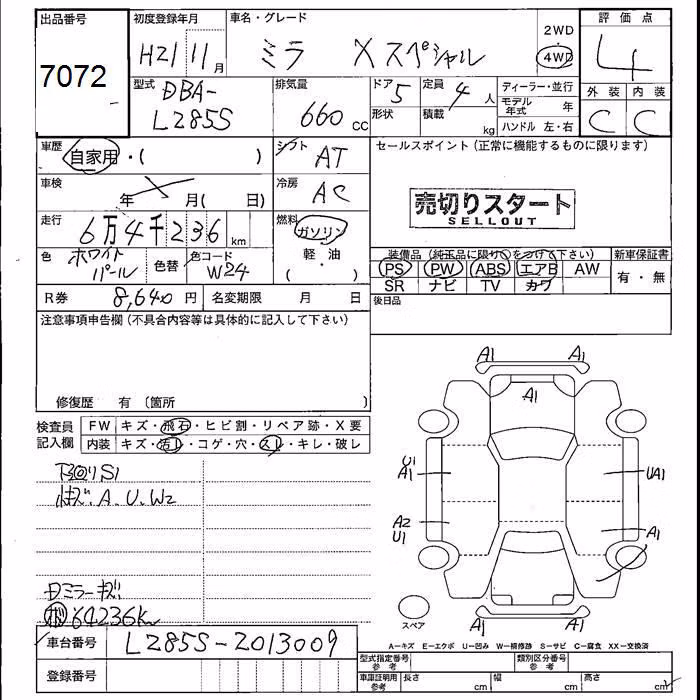 出品番号
7072
初度登録年月
H21 11月
車名・グレード
ミラ Xスペシャル
2WD
4WD
評価点
4
外装 内装
C C
型式
DBA-
L285S
排気量
660cc
ドア
5
形状
定員
4人
積載
kg
ディーラー・並行
モデル年式 年
ハンドル 左・右
車歴
自家用・( )
シフト
AT
セールスポイント (正常に機能するものに限ります)
売切りスタート
SELLOUT
車検
年 月( 日)
冷房
AC
走行
6万4千236km
燃料
ガソリン
軽・油
( )
色
ホワイト
パール
色替
色コード
W24
装備品 (純正品に限り○をつけて下さい)
PS PW ABS エアB AW
SR ナビ TV カワ
新車保証書
有・無
R券 8,640円
名変期限 月 日
後日品
注意事項申告欄(不具合内容等は具体的に記入して下さい)
修復歴 有 〔箇所 〕
検査員
記入欄
FW キズ・飛石・ヒビ割・リペア跡・X要
内装 キズ・汚レ・コゲ・穴・スレ・キレ・破レ
下回りS1
キズ、A、U、W2
Dミラーキズ
64236km
A1 A1
A1
U1
A1
UA1
A2
U1
A1
A1 A1
スペア
車台番号 L285S-2013009
登録番号
A-キズ E-エクボ U-凹み W-補修跡 S-サビ C-腐食 XX-交換済
型式指定番号
参考
類別区分番号
参考
車庫証明用
参考
長さ cm
幅 cm
高さ cm